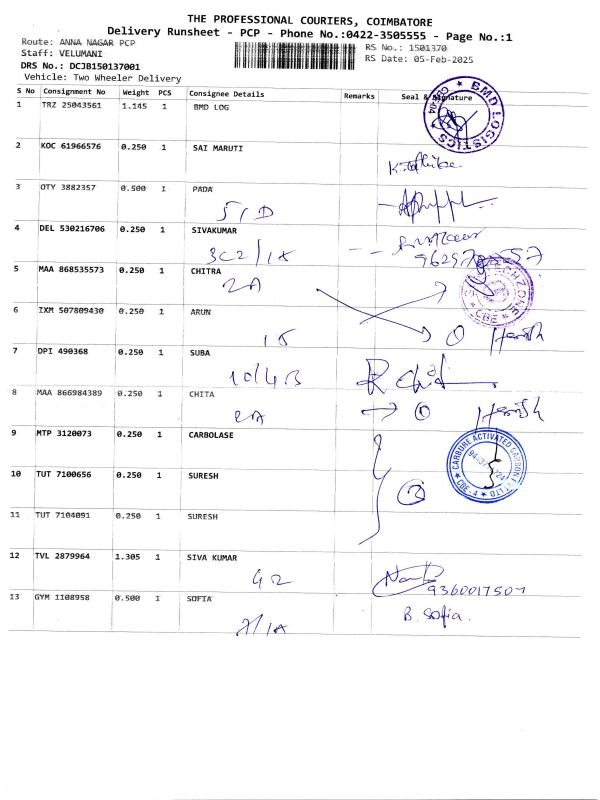 THE PROFESSIONAL COURIERS, COIMBATORE
Delivery Runsheet - PCP - Phone No.:0422-3505555 - Page No.:1
Route: ANNA NAGAR PCP
RS No.: 1501370
Staff: VELUMANI
RS Date: 05-Feb-2025
DRS No.: DCJB150137001
Vehicle: Two Wheeler Delivery
S No Consignment No Weight PCS Consignee Details Remarks Seal & Signature
1 TRZ 25043561 1.145 1 BMD LOG
BMD LOGISTICS
2 KOC 61966576 0.250 1 SAI MARUTI
3 OTY 3882357 0.500 1 PADA
5/D
4 DEL 530216706 0.250 1 SIVAKUMAR
3C2/1A
5 MAA 868535573 0.250 1 CHITRA
2A
TECHZONE
CBE
6 IXM 507809430 0.250 1 ARUN
Harish
7 DPI 490368 0.250 1 SUBA
10/4B
8 MAA 866984389 0.250 1 CHITA
2A
Harish
9 MTP 3120073 0.250 1 CARBOLASE
CARBURE ACTIVATED CARBON
CBE-4
10 TUT 7100656 0.250 1 SURESH
11 TUT 7104091 0.250 1 SURESH
12 TVL 2879964 1.305 1 SIVA KUMAR
G2
9360017507
13 GYM 1108958 0.500 1 SOFIA
7/1A
B. Sofia.